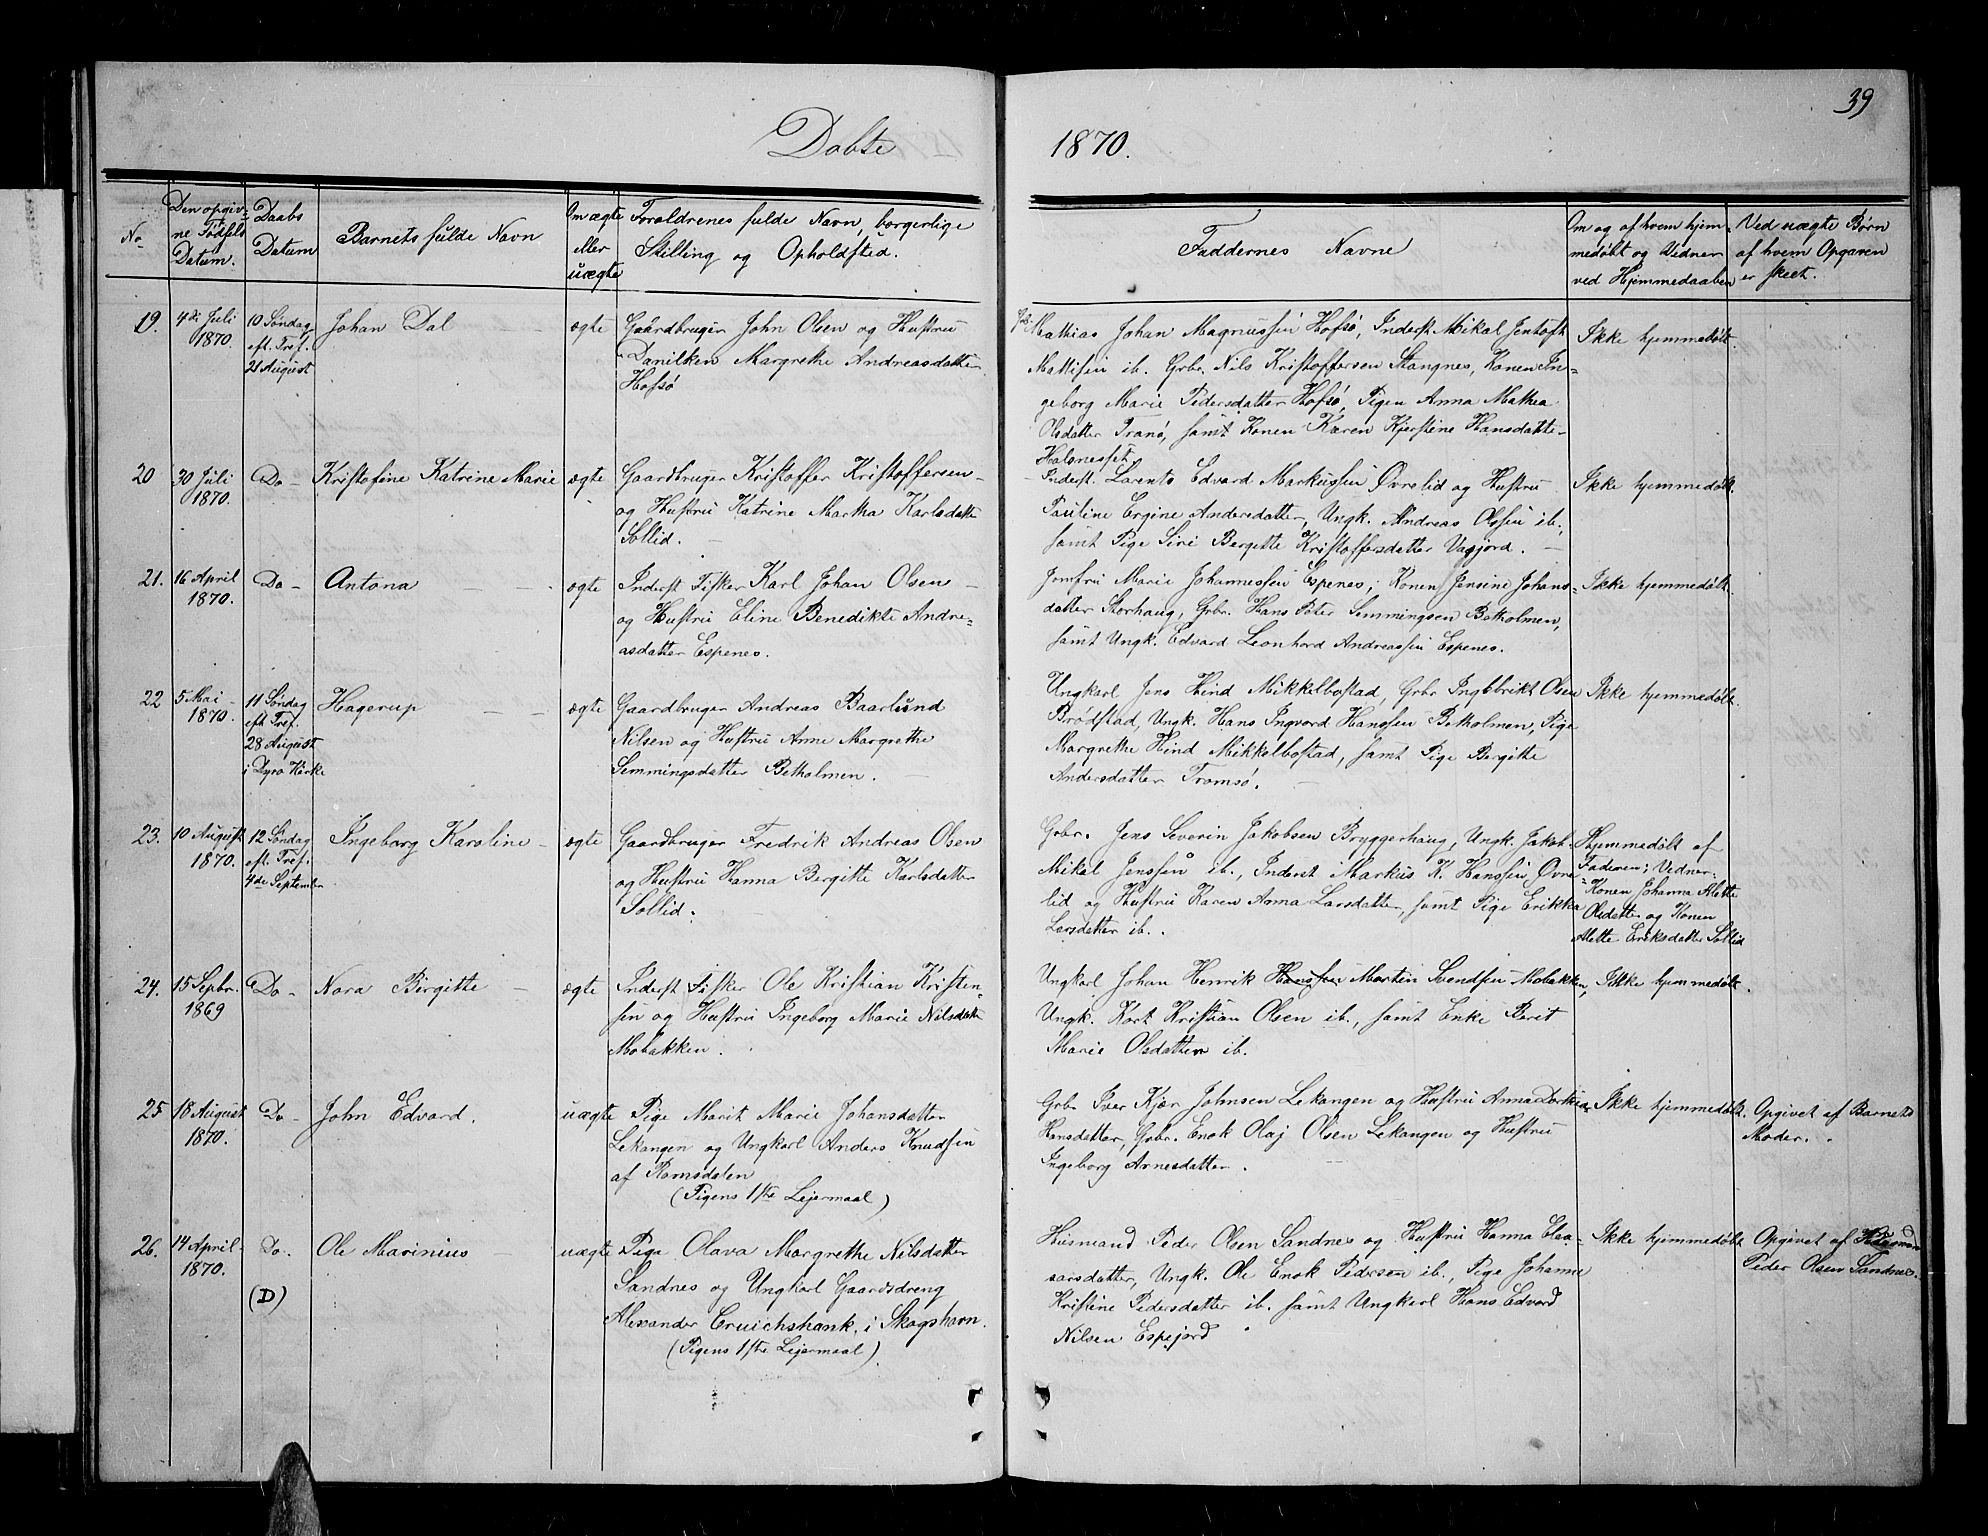 39
Døbte 1870.
No
Den opgiv-
ne Fødsels
Datum.
Daabs
Datum
Barnets fulde Navn
Om ægte
eller
uægte
Forældrenes fulde Navn, borgerlige
Stilling og Opholdsted.
Faddernes Navne
Om og af hvem hjem-
medøbt og Vidner
ved Hjemmedaaben
Ved uægte Børn
af hvem Opgaven
er skeet.
19.
4de Juli
1870.
10 Søndag
eft. Tref.
21 August
Johan Dal
ægte
Gaardbruger John Olsen og Hustru
Danilken Margrethe Andreasdatter
Hofsø
Mathias Johan Magnussen Hofsø, Inderst. Mikal Jentoft
Mathisen ib. Grbr. Nils Kristoffersen Stangnes, Konen In-
geborg Marie Pedersdatter Hofsø, Pigen Anna Mathea
Olsdatter Tranø, samt Konen Karen Kjerstine Hansdatte-
Halsnesset
Ikke hjemmedøbt.
20
30 Juli
1870.
Do
Kristofine Katrine Marie
ægte
Gaardbruger Kristoffer Kristoffersen
og Hustru Katrine Martha Karlsdatte
Sollid.
Inderst. Larents Edvard Markussen Øvrelid og Hustru
Pauline Ergine Andersdatter, Ungk. Andreas Olssen ib.,
samt Pige Sire Bergitte Kristoffersdatter Vagjord.
Ikke hjemmedøbt.
21.
16 April
1870.
Do
Antona
ægte
Inderst Fisker Karl Johan Olsen
og Hustru Eline Benedikte Andre-
asdatter Espenes.
Jomfru Marie Johannessen Espenes, Konen Jensine Johans-
datter Storhaug, Grbr. Hans Peter Semmingsen Betholmen,
samt Ungk. Edvard Leonhard Andreassen Espenes.
Ikke hjemmedøbt.
22
5 Mai
1870.
11 Søndag
eft Tref.
28 August
i Dyrø Kirke
Hagerup
ægte
Gaardbruger Andreas Baarlund
Nilsen og Hustru Anne Margrethe
Semmingsdatter Betholmen.
Ungkarl Jens Hind Mikkelbostad, Grbr Ingebrikt Olsen
Brødstad, Ungk. Hans Ingvard Hanssen Betholmen, Pige
Margrethe Hind Mikkelbostad, samt Pige Bergitte
Andersdatter Tromsø.
Ikke hjemmedøbt.
23.
10 August
1870.
12 Søndag
eft. Tref.
4de September
Ingeborg Karoline
ægte
Gaardbruger Fredrik Andreas Olsen
og Hustru Hanna Bergitte Karlsdatter
Sollid.
Grbr. Jens Severin Jakobsen Bryggerhaug, Ungk. Jakob
Mikal Jenssen ib., Inderst Markus K. Hanssen, Øvre
lid og Hustru Karen Anna Larsdatter, samt Pige Erikka
Larsdatter ib.
Hjemmedøbt af
Faderen; Vidner
Konen Johanna Alette
Olsdatter og Konen
Alette Eriksdatter Sollid
24.
15 Sepbr.
1869
Do
Nora Birgitte
ægte
Inderst Fisker Ole Kristian Kristen-
sen og Hustru Ingeborg Marie Nilsdatte
Mobakken.
Ungkarl Johan Henrik Hanssen Martin Svendsen Mobakken,
Ungk. Kort Kristian Olsen ib., samt Enke Berit
Marie Olsdatter ib.
Ikke hjemmedøbt.
25
18 August
1870.
Do
John Edvard.
uægte
Pige Marit Marie Johansdatter
Lekangen og Ungkarl Anders Knudsen
af Romsdalen
(Pigens 1ste Lejermaal)
Grbr Iver Kjær Johnsen Lekangen og Hustru Anna Dorthea
Hansdatter, Grbr. Enok Olaj Olsen Lekangen og Hustru
Ingeborg Arnesdatter.
Ikke hjemmedøbt.
Opgivet af Barnets
Moder.
26.
14 April
1870.
Do.
(D)
Ole Marinius
uægte
Pige Olava Margrethe Nilsdatter
Sandnes og Ungkarl Gaardsdreng
Alexander Cruichshank, i Skogshavn.
(Pigens 1ste Lejermaal)
Husmand Peder Olsen Sandnes og Hustru Hanna Elea-
sarsdatter, Ungk. Ole Enok Pedersen ib., Pige Johanne
Kristine Pedersdatter ib. samt Ungkarl Hans Edvard
Nilsen Espejord
Ikke hjemmedøbt
Opgivet af
Peder Olsen Sandnes.